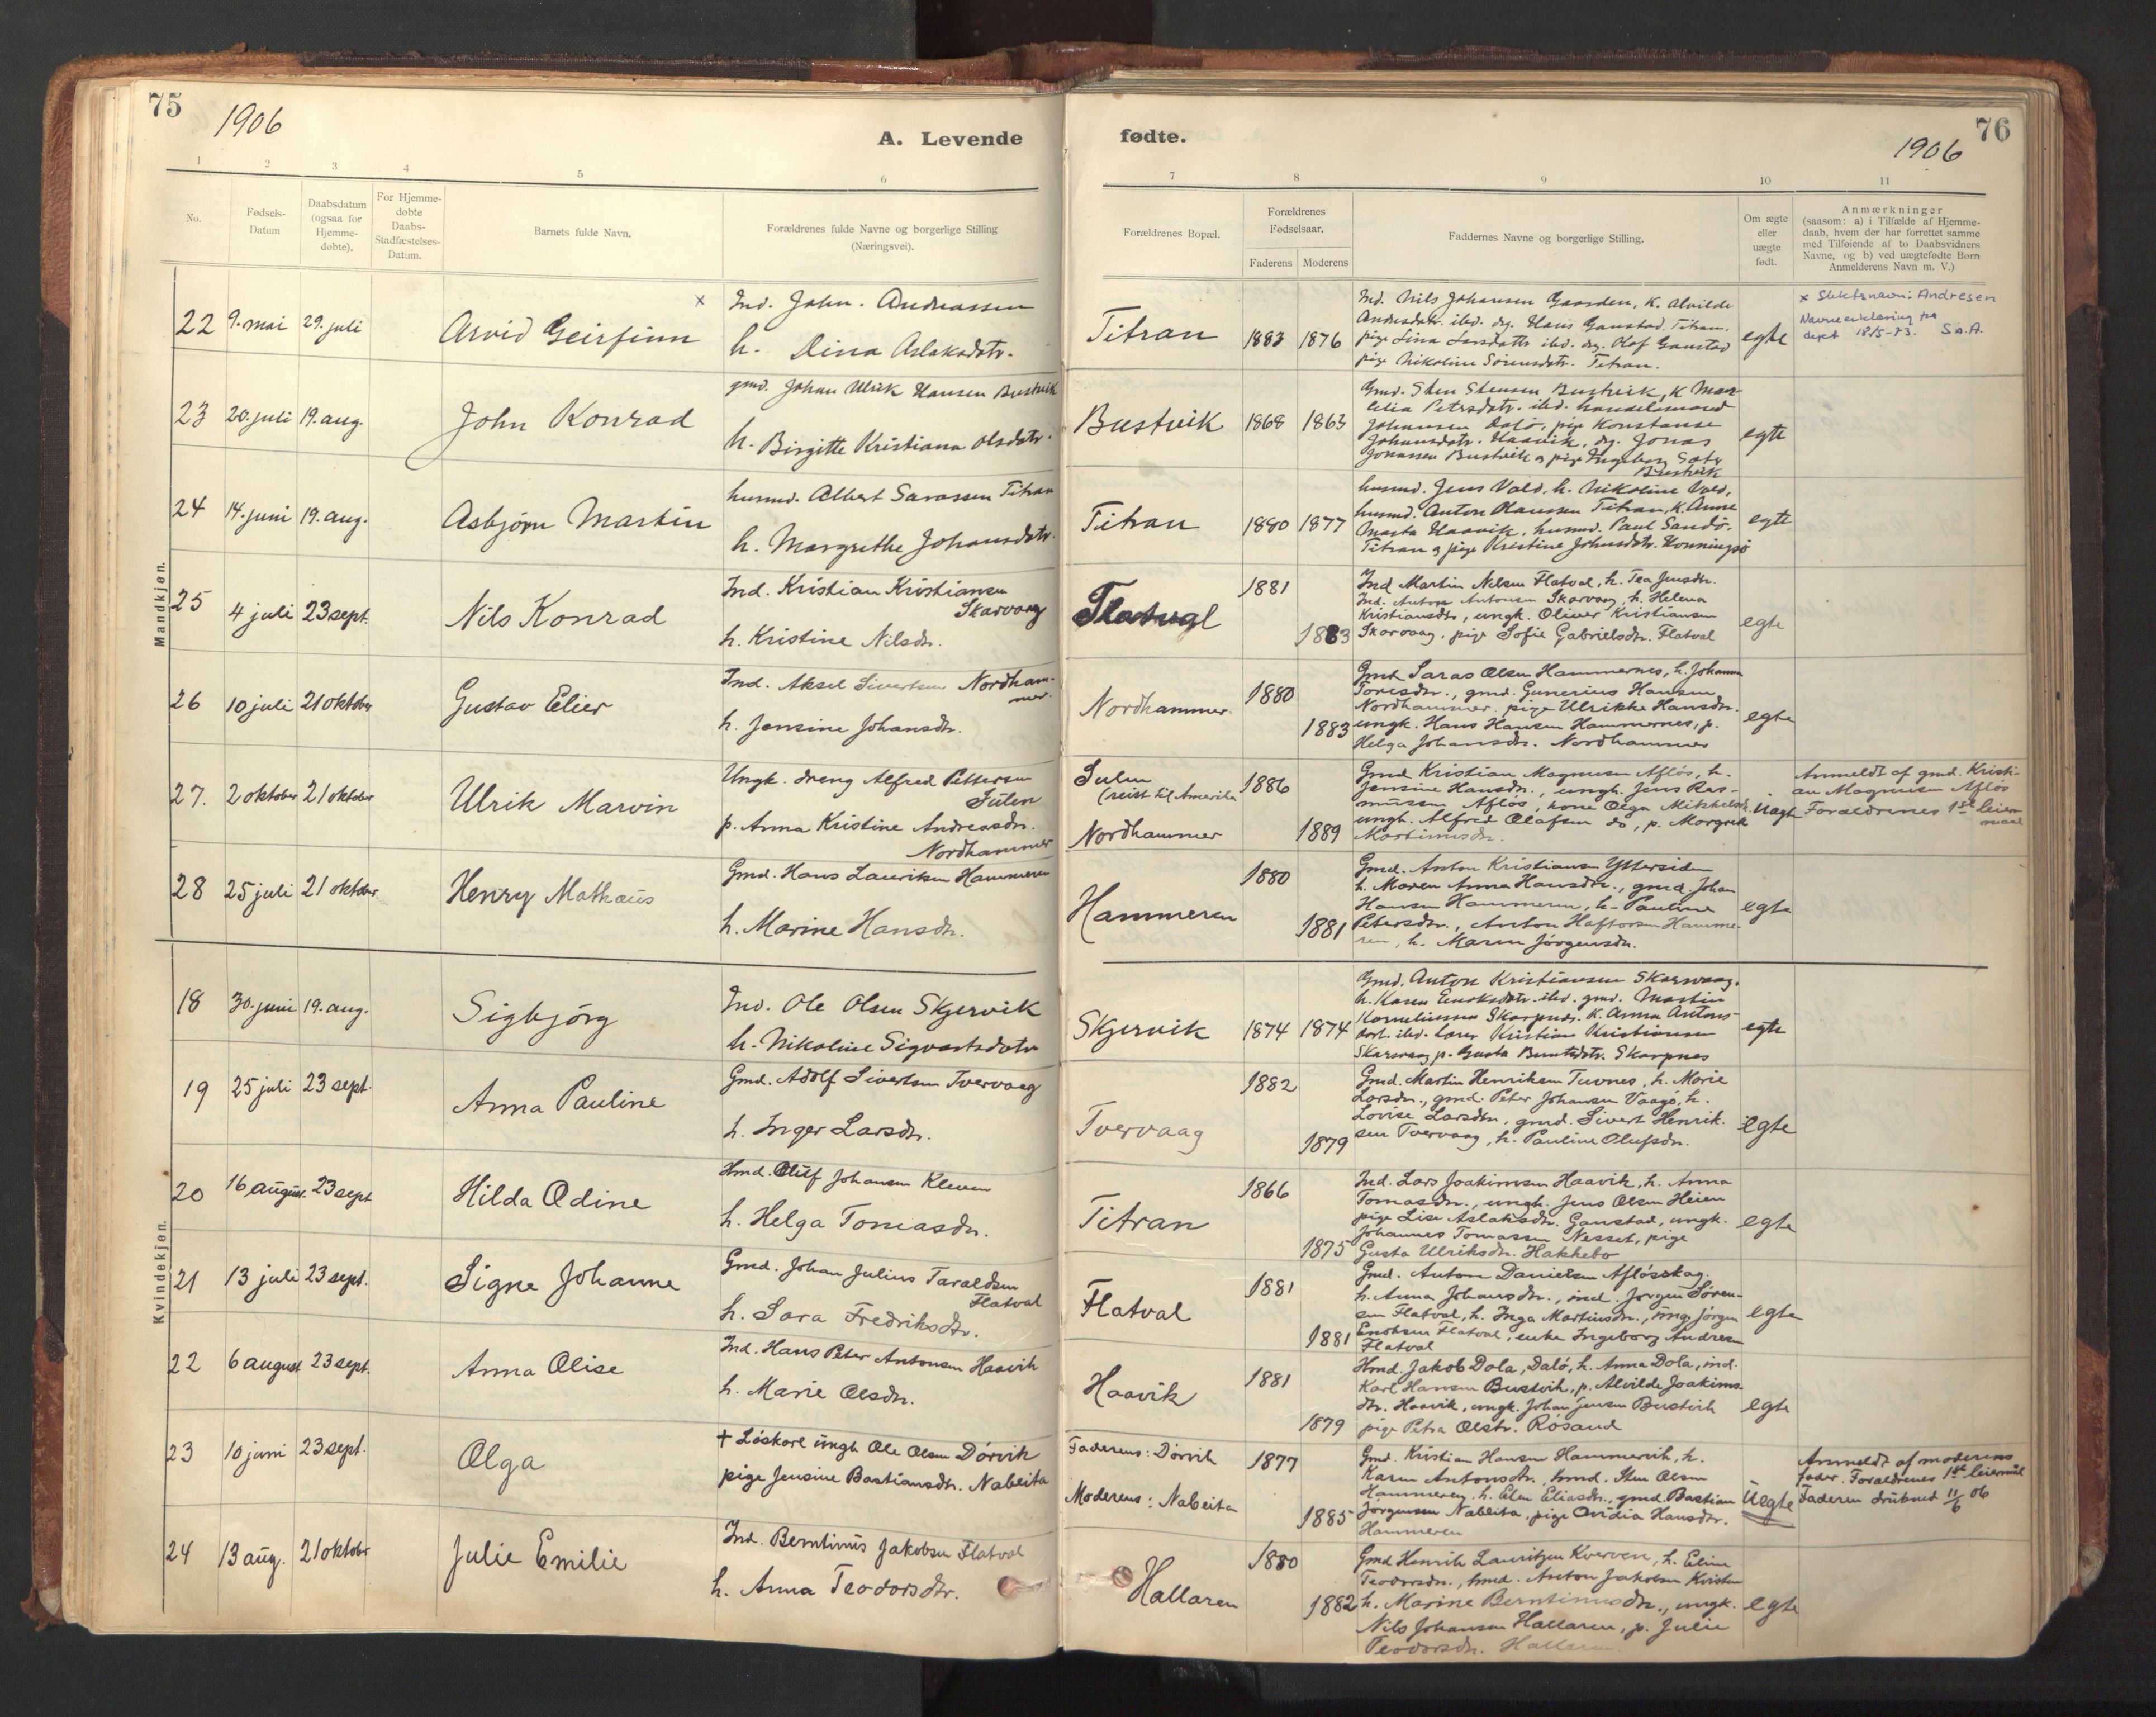 75
1906
A. Levende
fødte.
1906
76
1
2
3
4
5
6
7
8
9
10
11
No.
Fødsels-
Datum
Daabsdatum
(ogsaa for
Hjemme-
døbte).
For Hjemme-
døbte
Daabs-
Stadfæstelses-
Datum.
Barnets fulde Navn.
Forældrenes fulde Navne og borgerlige Stilling
(Næringsvei).
Forældrenes Bopæl.
Forældrenes
Fødselsaar.
Faderens
Moderens
Faddernes Navne og borgerlige Stilling.
Om ægte
eller
uægte
født.
Anmærkninger
(saasom: a) i Tilfælde af Hjemme-
daab, hvem der har forrettet samme
med Tilføiende af to Daabsvidners
Navne, og b) ved uægtefødte Børn
Anmelderens Navn m. V.)
Mandkjøn.
22 9. mai 29. juli Arvid Geirfinn x
Ind. John. Andreassen
h. Dina Aslaksdtr.
Titran 1883 1876
Ind. Nils Johansen Gaarden, K. Alvilde
Andersdatr. ibd. dg. Hans Gaustad, Titran.
pige Lina Larsdattr ibd. dg. Olof Gaustad
pige Nikoline Sørensdatr. Titran.
egte
x Slektsnavn: Andresen
Navneerklæring fra
dept 18/5-73. S.A.
23 20. juli 19. aug. John Konrad
gmd. Johan Ulrik Hansen Bustvik
h. Birgitte Kristiana Olsdatr.
Bustvik 1868 1863
Gmd. Sten Stensen Bustvik, K Mar-
celia Petersdatr. ibd. handelsmand
Johansen Dalø, pige Konstanse
Johansdatr. Haavik, dg. Jonas
Jonassen Bustvik og pige Ingeborg
Bustvik
egte
24 14. juni 19. aug. Asbjørn Martin
husmd. Albert Sarassen Titran
h. Margrethe Johansdatr.
Titran 1880 1877
husmd. Jens Vold, h. Nikoline Vold,
husmd. Anton Hansen Titran, K. Anne
Marta Haavik, husmd. Paul Sandø.
Titran og pige Kristine Johnsdatr. Honningsø
egte
25 4 juli 23 sept. Nils Konrad
Ind. Kristian Kristiansen
Skarvaag
h. Kristine Nilsdtr.
Flatval 1881
1883
Ind Martin Nelsen Flatval, h. Tea Jensdtr.
Ind. Anton Antonsen Skarvaag, h. Helena
Kristiansdtr, ungk. Oliver Kristiansen
Skarvaag, pige Sofie Gabrielsdtr. Flatval
egte
26 10 juli 21 oktober Gustav Elier
Ind. Aksel Sivertsen Nordham-
mer
h. Jensine Johansdtr.
Nordhammer. 1880
1883
Gmd Saras Olsen Hammernes, h. Johanna
Toresdtr., gmd. Gunerius Hansen
Nordhammer. pige Ulrikke Hansdtr.
ungk. Hans Hansen Hammernes, p.
Helga Johansdtr. Nordhammer
egte
27. 2 oktober 21 oktober Ulrik Marvin
Ungk. dreng Alfred Pettersen
Sulen
p. Anna Kristine Andreasdtr.
Nordhammer
Sulen
(reist til Amerika
Nordhammer
1886
1889
Gmd Kristian Magnusen Afløs, h.
Jensine Hansdtr., ungk. Jens Ras-
mussen Afløs, kone Olga Mikkelsdtr.
ungk. Alfred Olafsen do, p. Margrete
Martinusdtr.
Uegte
Anmeldt af gmd. Kristi-
an Magnusen Afløs
Foraldrenes 1ste leier-
maal
28 25 juli 21 oktober Henry Mathæus
Gmd. Hans Lauritsen Hammeren
h. Marine Hansdtr.
Hammeren 1880
1881
Gmd. Anton Kristiansen Yttersiden
h. Maren Anna Hansdtr., gmd. Johan
Hansen Hammeren, h. Pauline
Petersdtr., Anton Haftorsen Hamme-
ren, h. Maren Jørgensdtr.
egte
Kvindekjøn.
18 30. juni 19. aug. Sigbjørg
Ind. Ole Olsen Skjervik
h. Nikoline Sigvartsdatr
Skjervik 1874 1874
Gmd. Anton Kristiansen Skarsvaag.
h. Karen Enoksdatr. ibd. gmd. Martin
Korneliussen Skarpnes. K. Anna Antons-
datr. ibd. Kristian Kristiansen
Skarsvaag p. Gusta Berntsdtr. Skarpnes
egte
19 25 juli 23 sept. Anna Pauline
Gmd. Adolf Sivertsen Tvervaag
h. Inger Larsdtr.
Tvervaag 1882
1879
Gmd. Martin Henriksen Tuvnes, h. Marie
Larsdtr., gmd. Peter Johansen Vaagø, h.
Lovise Larsdtr, gmd. Sivert Henrik-
sen Tvervaag, h. Pauline Olufsdtr.
egte
20 16 august 23 sept Hilda Odine
Hmd. Oluf Johansen Kleven
h. Helga Tomasdtr.
Titran 1866
1875
Ind. Lars Joakimsen Haavik, h. Anna
Tomasdtr., ungk. Jens Olsen Heien
pige Lise Aslaksdtr. Gaustad, ungk.
Johannes Tomassen Nesset, pige
Gusta Ulriksdtr. Hakkebo
egte
21 13 juli 23 sept. Signe Johanne
Gmd. Johan Julius Taraldsen
Flatval
h. Sara Fredriksdtr.
Flatval 1881
1881
Gmd. Anton Danielsen Afløsskag.
h. Anna Johansdtr., ind. Jørgen Søren-
sen Flatval, h. Inga Martinsdtr., ung. Jørgen
Enoksen Flatval, enke Ingeborg Andresen
Flatval
egte
22 6 august 23 sept. Anna Olise
Ind. Hans Peter Antonsen Haavik
h. Marie Olsdtr.
Haavik 1881
1879
Hmd. Jakob Dola, Dalø, h. Anna Dola, ind.
Karl Hansen Bustvik, p. Alvilde Joakims-
dtr. Haavik, ungk. Johan Jensen Bustvik
pige Petra Olstr. Røsand
egte
23 10 juni 23 sept. Olga
+ Løskarl ungk Ole Olsen Dørvik
pige Jensine Bastiansdtr. Nabeita
Faderens: Dørvik
Moderens: Nabeita
1877
1885
Gmd. Kristian Hansen Hammervik, h.
Karen Antonsdtr., hmd. Sten Olsen
Hammeren, h. Elen Eliasdtr., gmd. Bastian
Jørgensen Nabeita, pige Ovidia Hansdtr.
Hammeren
Uegte
Anmeldt af moderens
fader. Foraldrenes 1ste leiermål
Faderen druknet 11/6 06
24 13 aug. 21 oktober Julie Emilie
Ind. Berntinus Jakobsen Flatval
h. Anna Teodorsdtr.
Hallaren 1880
1882
Gmd Henrik Lauritzen Kverven, h. Eline
Teodorsdtr., hmd. Anton Jakobsen Kvisten
h. Marine Berntinusdtr., ungk.
Nils Johansen Hallaren, p. Julie
Teodorsdtr. Hallaren
egte